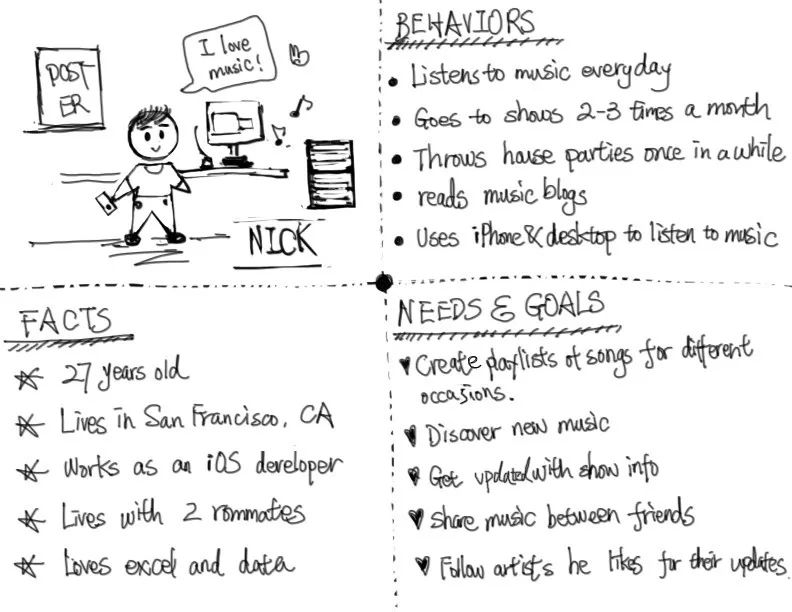 POST
ER
I love
music!
NICK
BEHAVIORS
Listens to music everyday
Goes to shows 2-3 times a month
Throws house parties once in a while
reads music blogs
Uses iPhone & desktop to listen to music
FACTS
27 years old
Lives in San Francisco, CA
Works as an iOS developer
Lives with 2 rommates
Loves excel and data
NEEDS & GOALS
Create playlists of songs for different
occasions.
Discover new music
Get updated with show info
Share music between friends
Follow artists he likes for their updates.